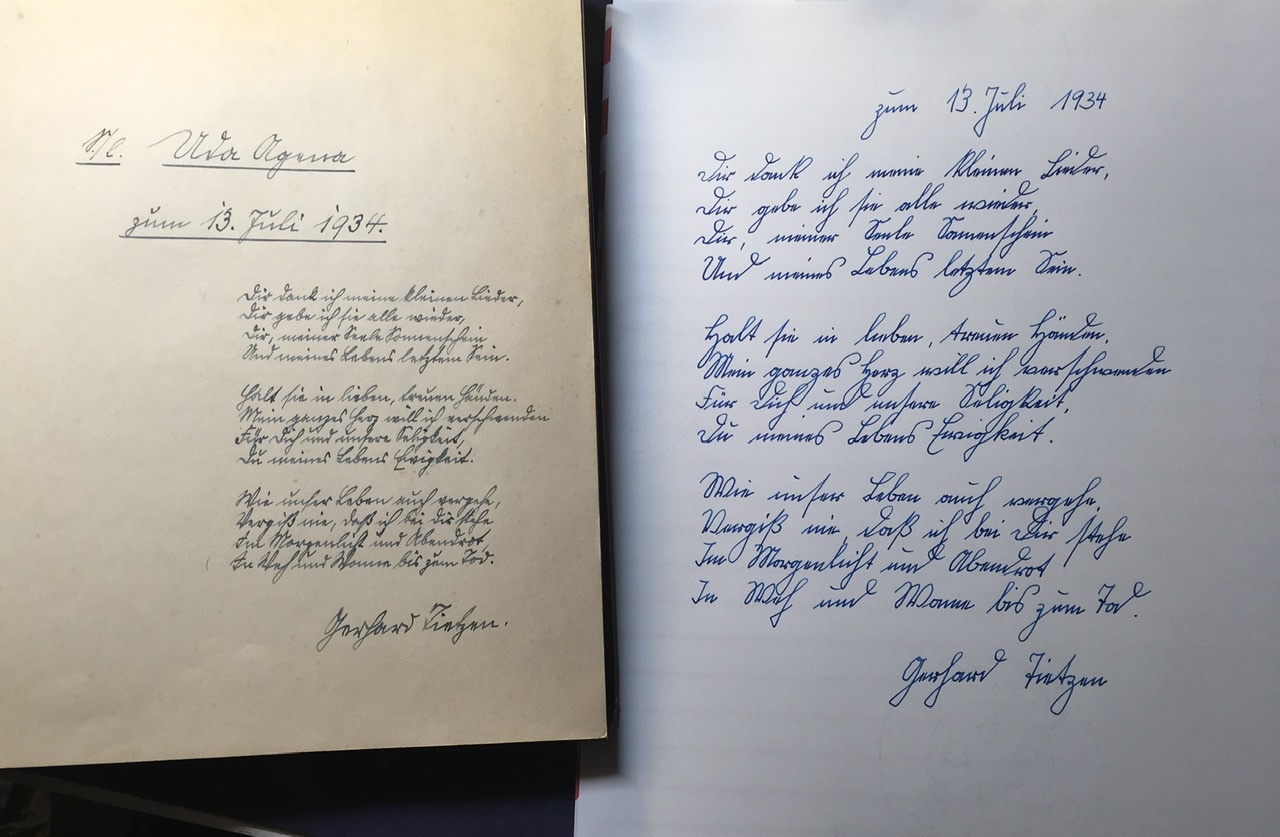 Frl. Uda Agena
zum 13. Juli 1934.
Dir dank ich meine kleinen Lieder,
Dir gebe ich sie alle wieder,
Dir, meiner Seele Sonnenschein
Und meines Lebens letztem Sein.
Halt sie in lieben, treuen Händen.
Mein ganzes Herz will ich verschwenden
Für Dich und unsere Seligkeit,
Du meines Lebens Ewigkeit.
Wie unser Leben auch vergehe,
Vergiß nie, daß ich bei dir stehe
Im Morgenlicht und Abendrot
In Weh und Wonne bis zum Tod.
Gerhard Tietzen.
zum 13. Juli 1934
Dir dank ich meine kleinen Lieder,
Dir gebe ich sie alle wieder,
Dir, meiner Seele Sonnenschein
Und meines Lebens letztem Sein.
Halt sie in lieben, treuen Händen.
Mein ganzes Herz will ich verschwenden
Für Dich und unsere Seligkeit,
Du meines Lebens Ewigkeit.
Wie unser Leben auch vergehe,
Vergiß nie, daß ich bei Dir stehe
Im Morgenlicht und Abendrot
In Weh und Wonne bis zum Tod.
Gerhard Tietzen